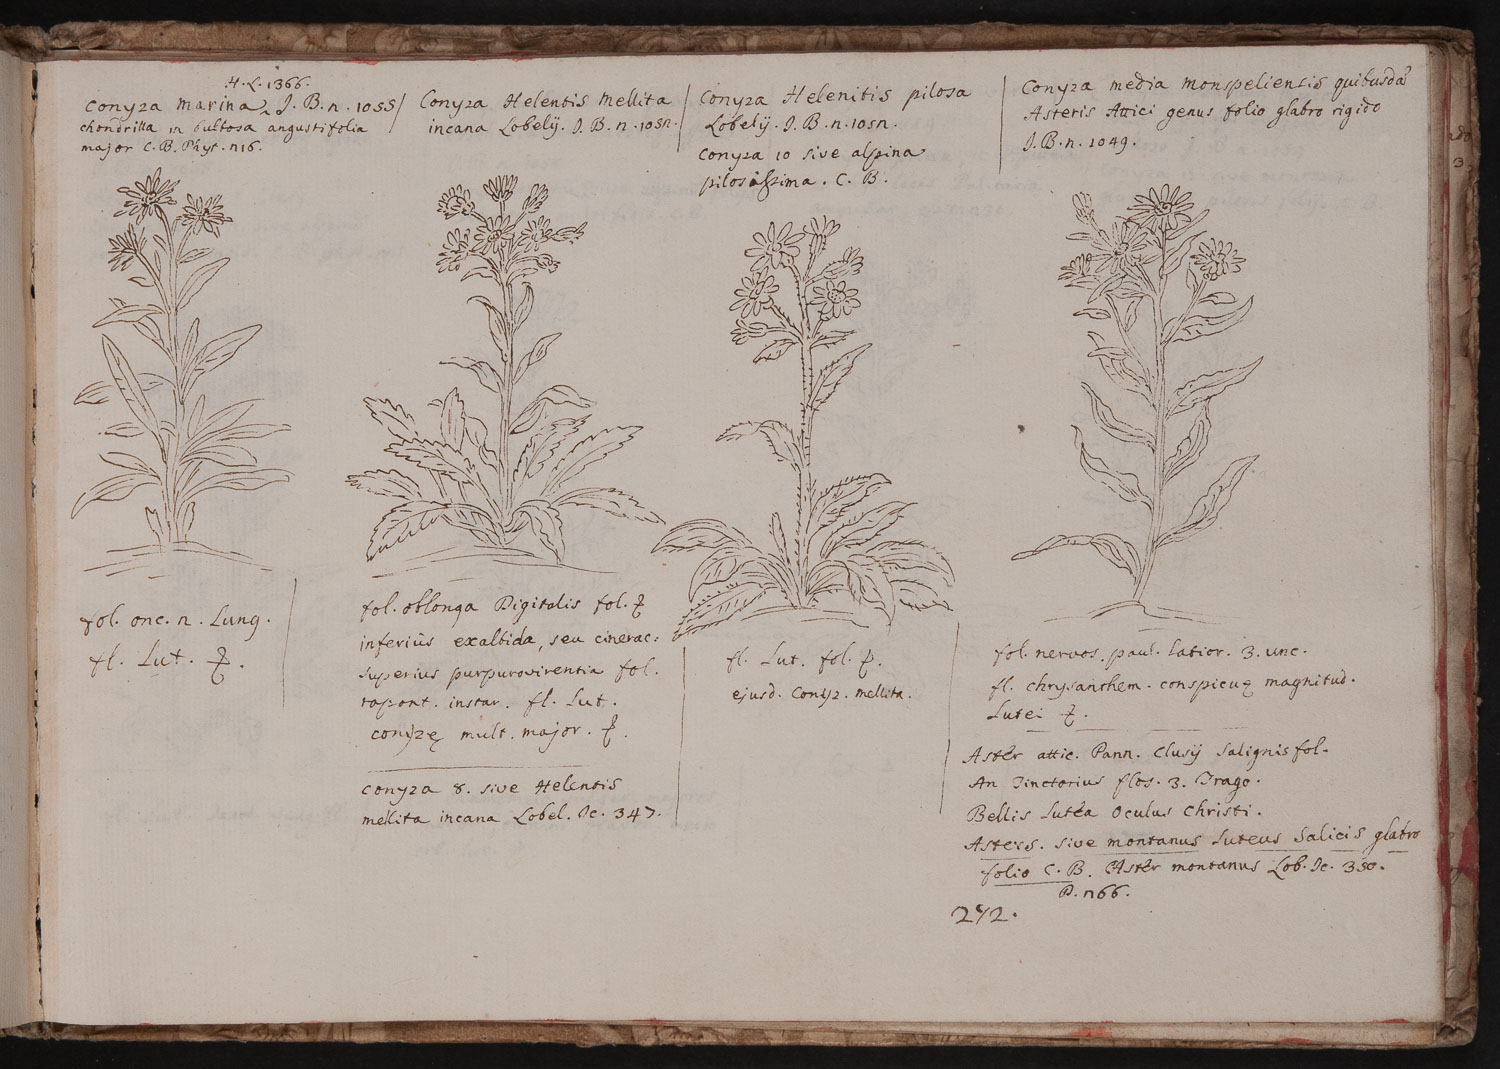 H. L. 1366.
Conyza marina, J. B. n. 1055
chondrilla in bulbosa angustifolia
major C. B. Phyt. n 16.
Conyza Helentis Mellita
incana Lobelij. J. B. n. 1051.
Conyza Helenitis pilosa
Lobelij. J. B. n. 1051.
Conyza 10 sive alpina
pilosissima. C. B.
Conyza media monspeliensis quibusdã
Asteris Attici genus folio glabro rigido
J. B. n. 1049.
fol. onc. n. Lung.
fl. Lut. ♃.
fol. oblonga Digitalis fol.
inferiùs exalbida, seu cinerac:
superius purpurovirentia fol.
rapont. instar. fl. Lut.
conyzę mult. major.
Conyza 8. sive Helentis
mellita incana Lobel. Ic. 347.
fl. Lut. fol.
ejusd. Conyz. mellita.
fol. nervos. paul. latior. 3. unc.
fl. chrysanthem. conspicuę magnitud.
Lutei ♃.
Astèr attic. Pann. Clusij Salignis fol.
An Tinctorius flos. 3. Trago.
Bellis Lutèa Oculus Christi.
Asteris. sive montanus Luteus Salicis glabro
folio C. B. Astèr montanus Lob. Ic. 350.
P. n 66.
272.